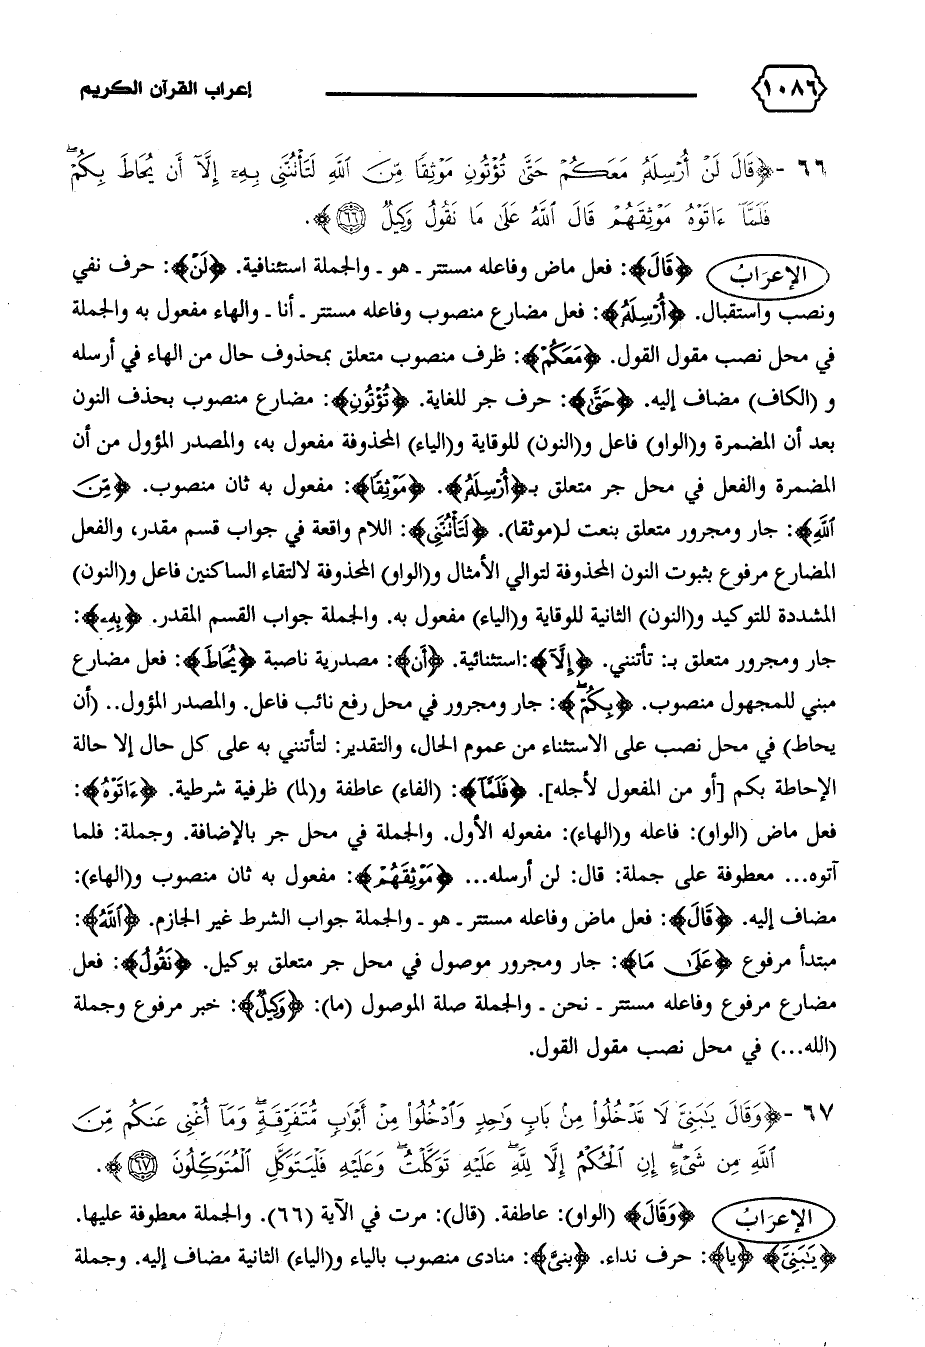 ١٠٨٦ إعراب القرآن الكريم
٦٦ -﴿قَالَ لَنْ أُرْسِلَهُۥ مَعَكُمْ حَتَّىٰ تُؤْتُونِ مَوْثِقًا مِّنَ ٱللَّهِ لَتَأْتُنَّنِى بِهِۦٓ إِلَّآ أَن يُحَاطَ بِكُمْۖ
فَلَمَّآ ءَاتَوْهُ مَوْثِقَهُمْ قَالَ ٱللَّهُ عَلَىٰ مَا نَقُولُ وَكِيلٌ ﴿٦٦﴾﴾.
الإعرَابُ ﴿قَالَ﴾: فعل ماض وفاعله مستتر ـ هو ـ والجملة استئنافية. ﴿لَنْ﴾: حرف نفي
ونصب واستقبال. ﴿أُرْسِلَهُ﴾: فعل مضارع منصوب وفاعله مستتر ـ أنا ـ والهاء مفعول به والجملة
في محل نصب مقول القول. ﴿مَعَكُمْ﴾: ظرف منصوب متعلق بمحذوف حال من الهاء في أرسله
و (الكاف) مضاف إليه. ﴿حَتَّىٰ﴾: حرف جر للغاية. ﴿تُؤْتُونِ﴾: مضارع منصوب بحذف النون
بعد أن المضمرة و(الواو) فاعل و(النون) للوقاية و(الياء) المحذوفة مفعول به، والمصدر المؤول من أن
المضمرة والفعل في محل جر متعلق بـ﴿أُرْسِلَهُ﴾. ﴿مَوْثِقًا﴾: مفعول به ثان منصوب. ﴿مِّنَ
ٱللَّهِ﴾: جار ومجرور متعلق بنعت لـ(موثقا). ﴿لَتَأْتُنَّنِى﴾: اللام واقعة في جواب قسم مقدر، والفعل
المضارع مرفوع بثبوت النون المحذوفة لتوالي الأمثال و(الواو) المحذوفة لالتقاء الساكنين فاعل و(النون)
المشددة للتوكيد و(النون) الثانية للوقاية و(الياء) مفعول به. والجملة جواب القسم المقدر. ﴿بِهِۦ﴾:
جار ومجرور متعلق بـ: تأتنني. ﴿إِلَّآ﴾:استثنائية. ﴿أَن﴾: مصدرية ناصبة ﴿يُحَاطَ﴾: فعل مضارع
مبني للمجهول منصوب. ﴿بِكُمْۖ﴾: جار ومجرور في محل رفع نائب فاعل. والمصدر المؤول.. (أن
يحاط) في محل نصب على الاستثناء من عموم الحال، والتقدير: لتأتنني به على كل حال إلا حالة
الإحاطة بكم [أو من المفعول لأجله]. ﴿فَلَمَّآ﴾: (الفاء) عاطفة و(لما) ظرفية شرطية. ﴿ءَاتَوْهُ﴾:
فعل ماض (الواو): فاعله و(الهاء): مفعوله الأول. والجملة في محل جر بالإضافة. وجملة: فلما
آتوه... معطوفة على جملة: قال: لن أرسله... ﴿مَوْثِقَهُمْ﴾: مفعول به ثان منصوب و(الهاء):
مضاف إليه. ﴿قَالَ﴾: فعل ماض وفاعله مستتر ـ هو ـ والجملة جواب الشرط غير الجازم. ﴿ٱللَّهُ﴾:
مبتدأ مرفوع ﴿عَلَىٰ مَا﴾: جار ومجرور موصول في محل جر متعلق بوكيل. ﴿نَقُولُ﴾: فعل
مضارع مرفوع وفاعله مستتر ـ نحن ـ والجملة صلة الموصول (ما): ﴿وَكِيلٌ﴾: خبر مرفوع وجملة
(الله...) في محل نصب مقول القول.
٦٧ -﴿وَقَالَ يَٰبَنِىَّ لَا تَدْخُلُوا۟ مِنۢ بَابٍ وَٰحِدٍ وَٱدْخُلُوا۟ مِنْ أَبْوَٰبٍ مُّتَفَرِّقَةٍۖ وَمَآ أُغْنِى عَنكُم مِّنَ
ٱللَّهِ مِن شَىْءٍۖ إِنِ ٱلْحُكْمُ إِلَّا لِلَّهِۖ عَلَيْهِ تَوَكَّلْتُۖ وَعَلَيْهِ فَلْيَتَوَكَّلِ ٱلْمُتَوَكِّلُونَ ﴿٦٧﴾﴾.
الإعرَابُ ﴿وَقَالَ﴾ (الواو): عاطفة. (قال): مرت في الآية (٦٦). والجملة معطوفة عليها.
﴿يَٰبَنِىَّ﴾ ﴿يا﴾: حرف نداء. ﴿بنىَّ﴾: منادى منصوب بالياء و(الياء) الثانية مضاف إليه. وجملة